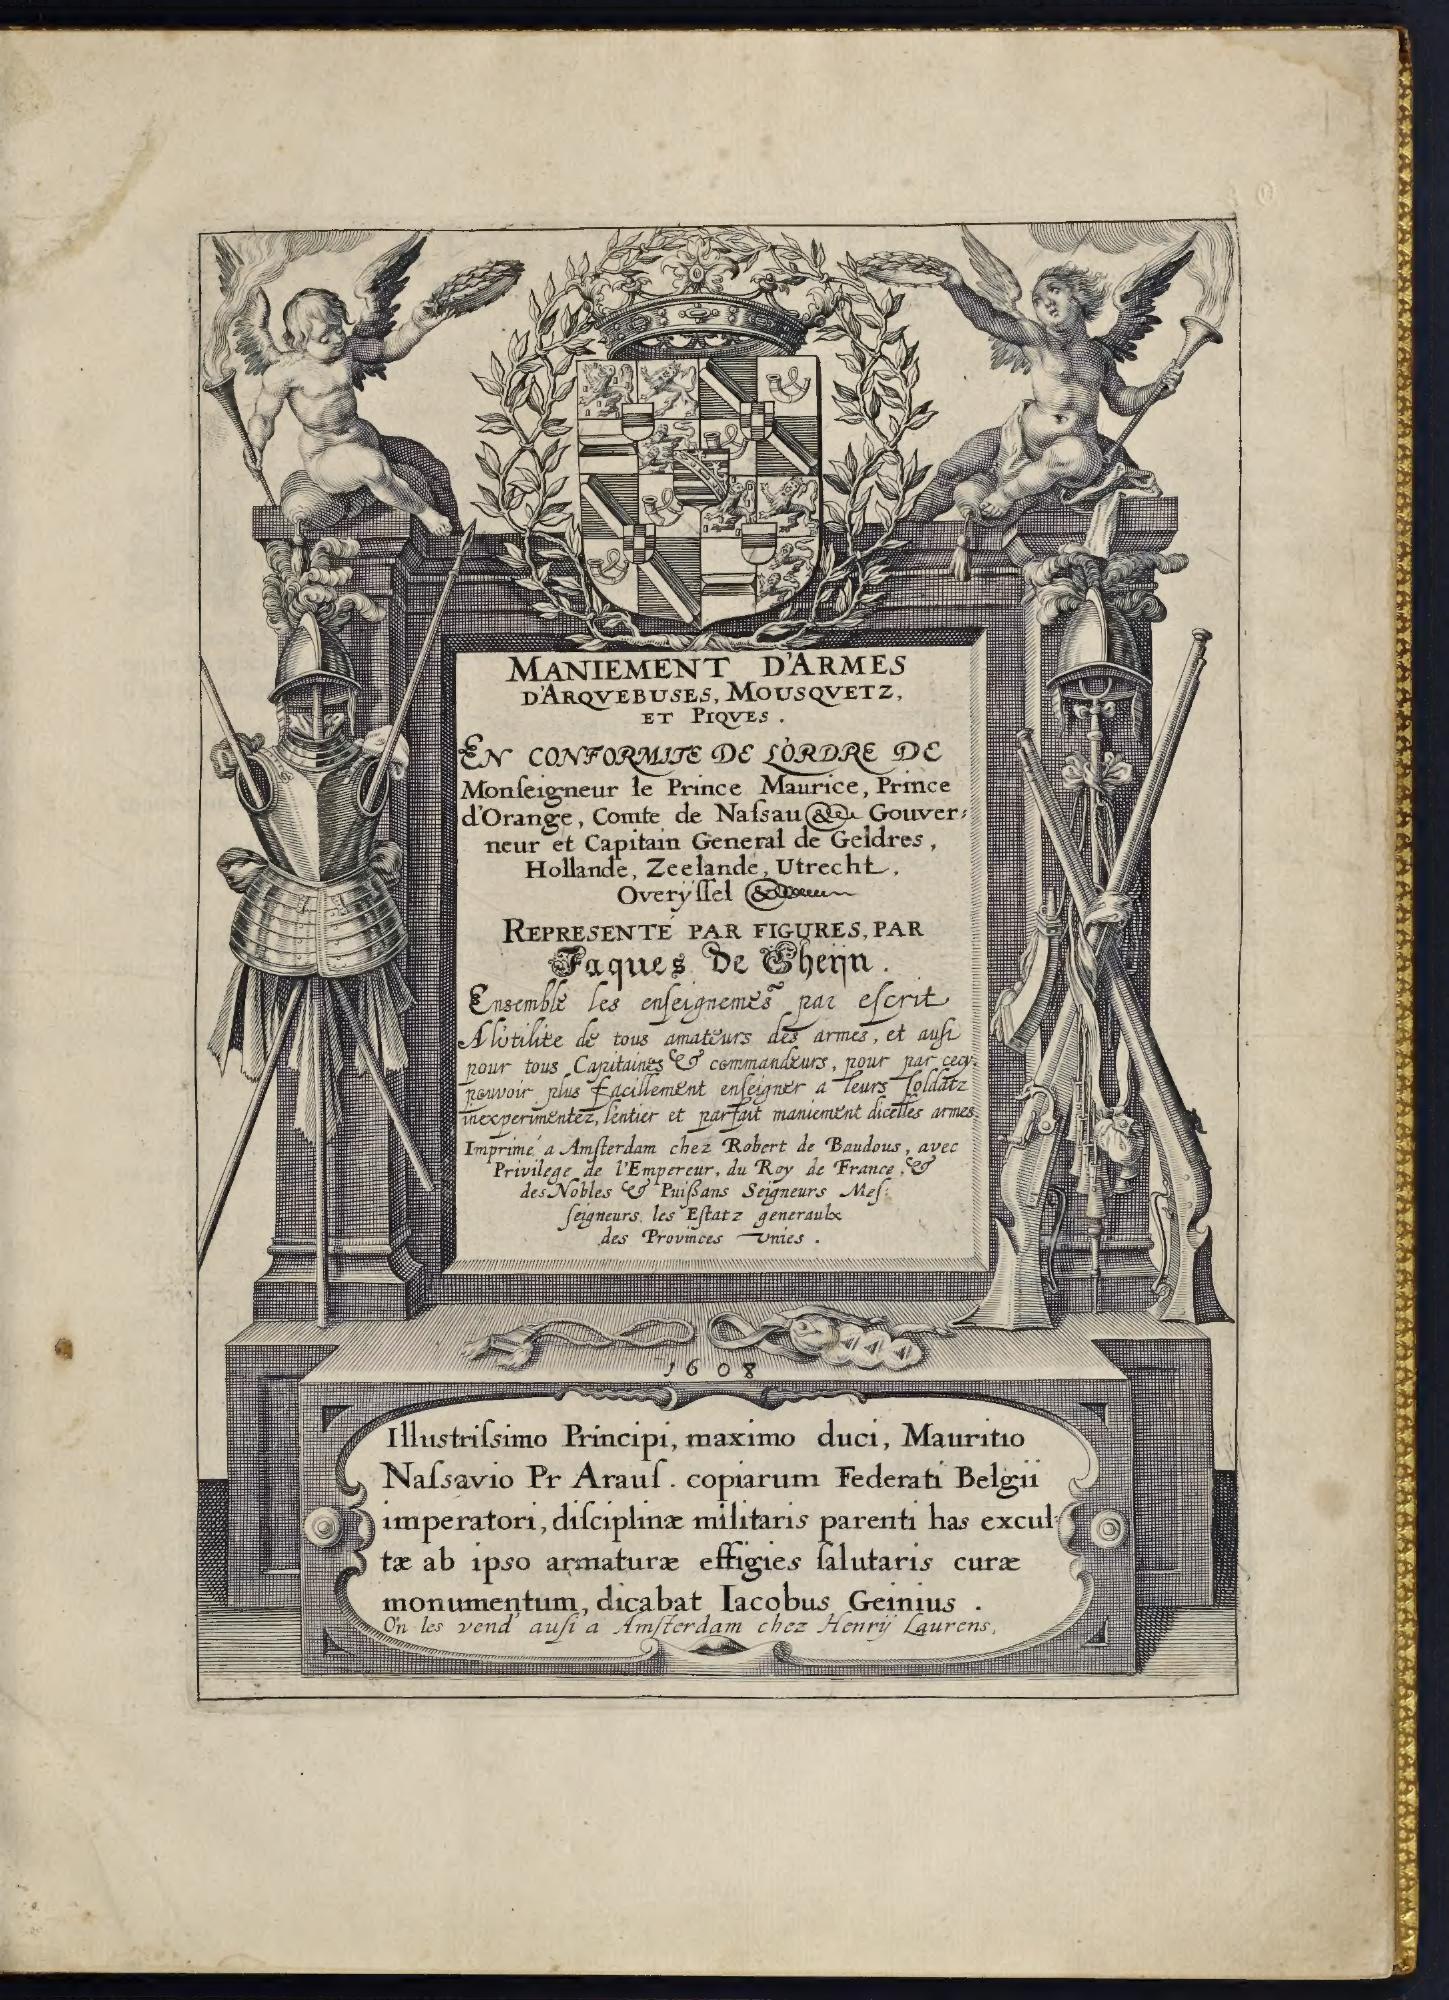 MANIEMENT D'ARMES
D'ARQVEBUSES, MOUSQVETZ,
ET PIQVES.
EN CONFORMITE DE L'ORDRE DE
Monſeigneur le Prince Maurice, Prince
d'Orange, Comte de Naſsau &c. Gouver-
neur et Capitain General de Geldres,
Hollande, Zeelande, Utrecht,
Overÿſſel &c.
REPRESENTÉ PAR FIGURES, PAR
Jaques De Gheijn.
Ensemble les enſeignemẽs par eſcrit
A lutilite de tous amateurs des armes, et auſi
pour tous Capitaines & commandeurs, pour par cecy
pouvoir plus facillement enſeigner a leurs ſoldatz
inexperimentez, lentier et parfait maniement dicelles armes
Imprimé a Amſterdam chez Robert de Baudous, avec
Privilege de l'Empereur, du Roy de France, &
des Nobles & Puißans Seigneurs Meſ-
ſeigneurs les Eſtatz generaulx
des Provinces Vnies.
1608
Illustriſsimo Principi, maximo duci, Mauritio
Naſsavio Pr Arauſ. copiarum Federati Belgii
imperatori, diſciplinæ militaris parenti has excul-
tæ ab ipso armaturæ effigies ſalutaris curæ
monumentum, dicabat Iacobus Geinius.
On les vend auſi a Amſterdam chez Henrÿ Laurens,